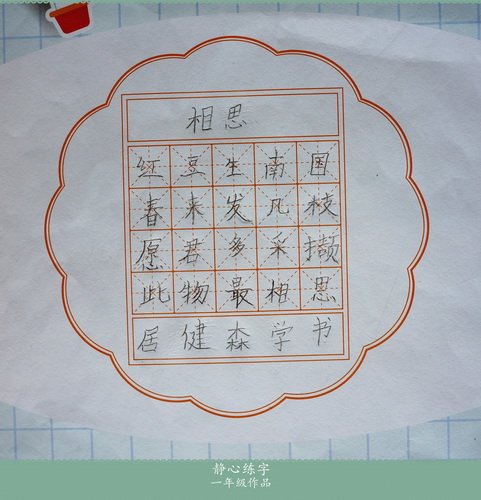 相思
红豆生南国
春来发凡枝
愿君多采撷
此物最相思
居健森学书
静心练字
一年级作品